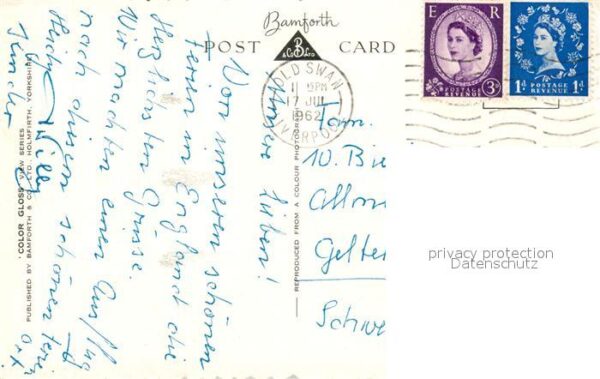 Bamforth
POST CARD
B
& Co Ltd
E R
POSTAGE
REVENUE
3D
POSTAGE
REVENUE
1d 1d
OLD SWAN
11 PM
17 JUL
1962
LIVERPOOL
Unsere Lieben!
Von unseren schönen
Ferien in England die
herzlichsten Grüsse.
Wir machten einen Ausflug
nach diesem schönen
Ort.
Willy
Fam.
10. Bie
Allm
Gelte
Schwe
"COLOR GLOSS" VIEW SERIES
PUBLISHED BY BAMFORTH & CO., LTD., HOLMFIRTH, YORKSHIRE
REPRODUCED FROM A COLOUR PHOTOGRAPH
privacy protection
Datenschutz